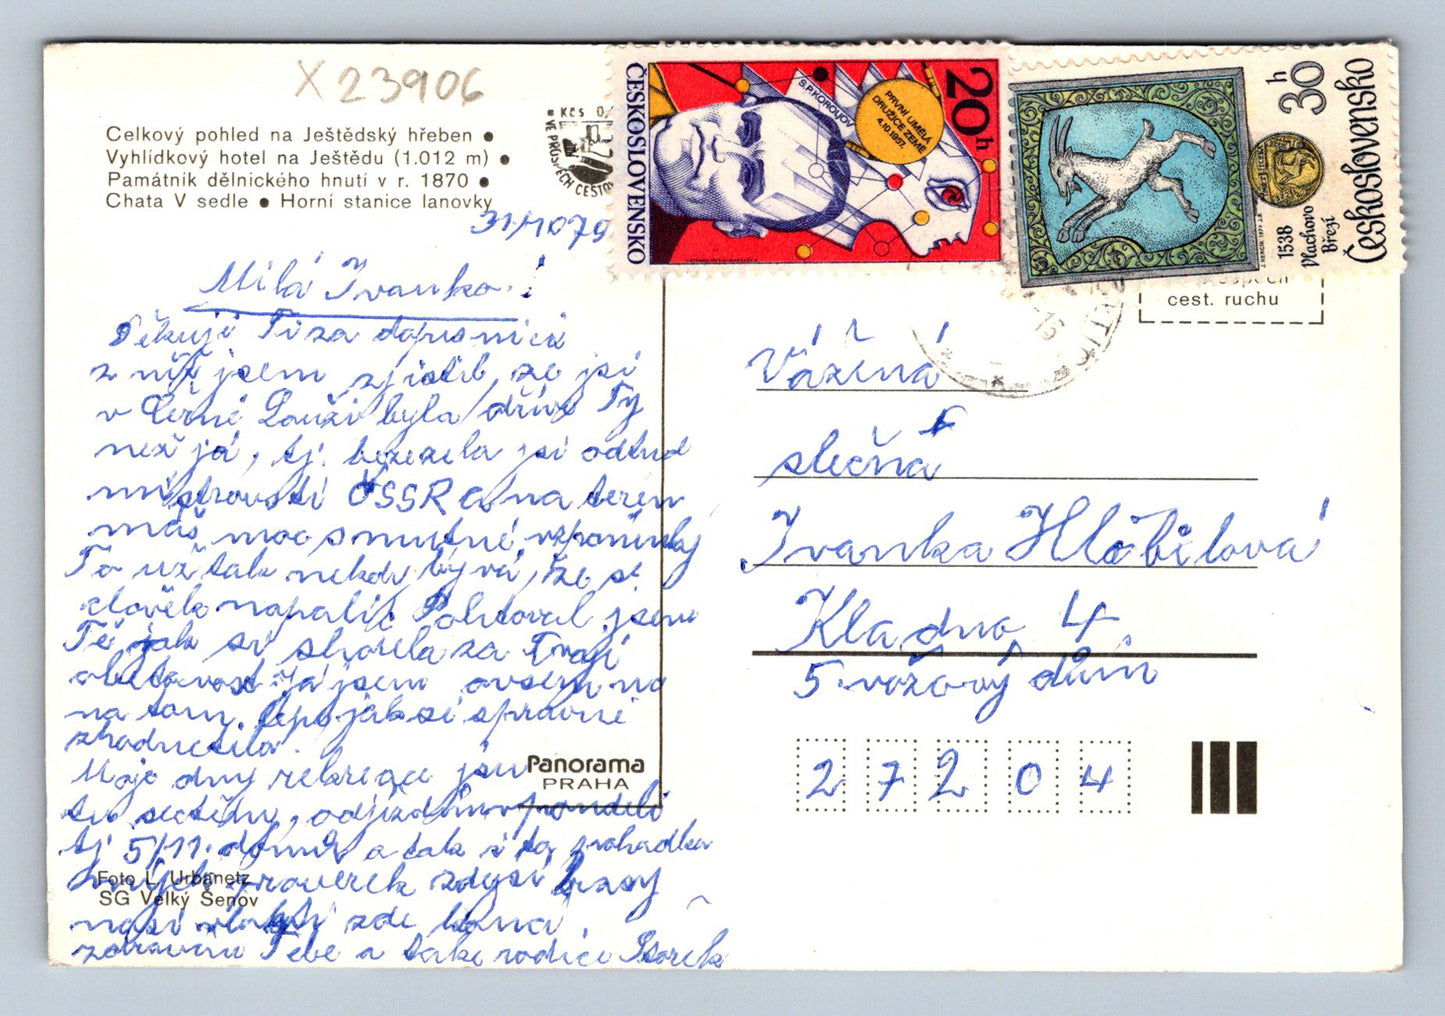 X 23906
Celkový pohled na Ještědský hřeben ●
Vyhlídkový hotel na Ještědu (1.012 m) ●
Památník dělnického hnutí v r. 1870 ●
Chata V sedle ● Horní stanice lanovky
Kčs 0,
VE PROSPĚCH CESTOV
ČESKOSLOVENSKO
20h
S.P. KOROLJOV
PRVNÍ UMĚLÁ
DRUŽICE ZEMĚ
4.10.1957.
30 h
Československo
1538
Vlachovo
Březí
cest. ruchu
31/10 79
Milá Ivanko!
Děkuji Ti za dopisnici
z níž jsem zjistil, že jsi
v Černé Louži byla dříve Ty
než já, tj. jsi odtud
mistrovství ČSSR a na terén
máš moc smutné vzpomínky
To už tak někdy bývá, že se
člověk napálí. Politoval jsem
Tě jak si shořela za Tvoji
obětavost já jsem ovšem
na tom lépe jak si správně
zhodnotila.
Moje dny rekreace jsou
tu sečteny, odjíždím v pondělí
tj 5/11. domů a tak i ta pohádka
mých zdejší krásy
naší vlasti zde končí
zdravím Tebe a také rodiče
Panorama
PRAHA
Foto L. Urbanetz
SG Velký Šenov
Vážená
slečna
Ivanka Hlobilová
Kladno 4
5. věžový dům
272 04